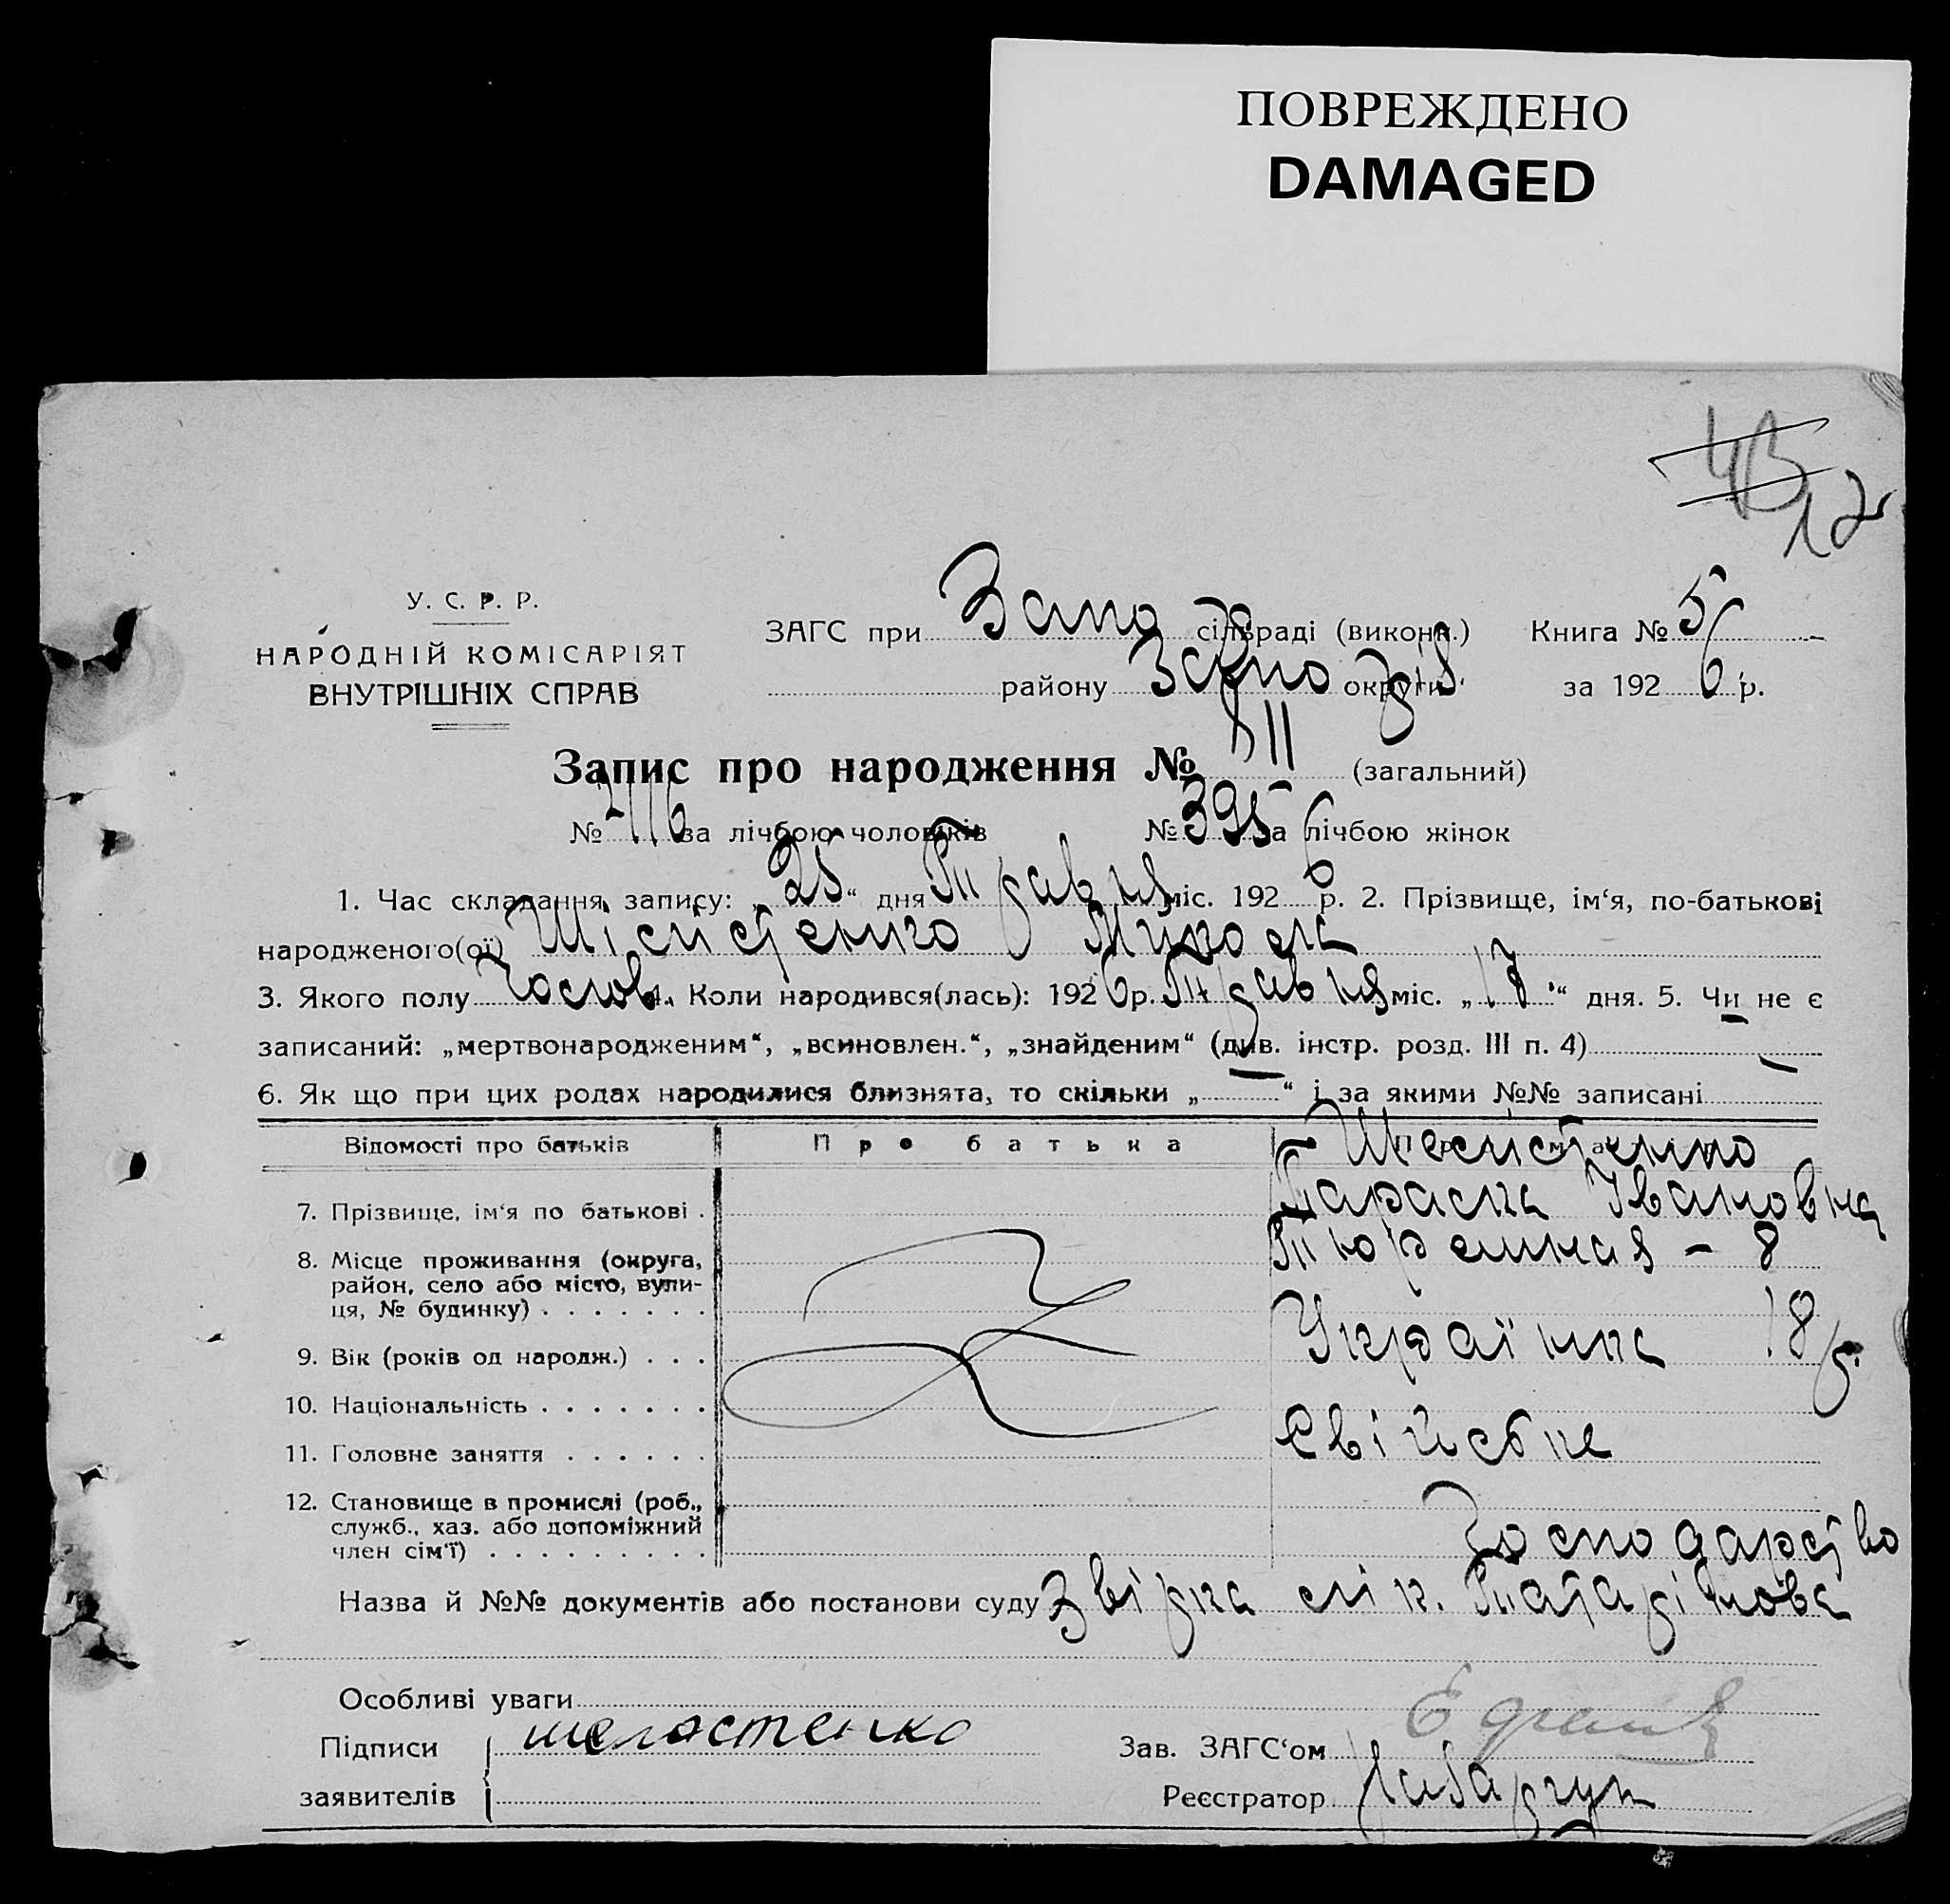 ПОВРЕЖДЕНО
DAMAGED
12
У. С. Р. Р.
НАРОДНІЙ КОМІСАРІЯТ
ВНУТРІШНІХ СПРАВ
ЗАГС при сільраді (виконк.) Книга № 5
району округи за 192 6 р.
Запис про народження № 811 (загальний)
№ 416 за лічбою чоловіків № 395 за лічбою жінок
1. Час складання запису: „ 25 “ дня Травня міс. 192 6 р. 2. Прізвище, ім‘я, по-батькові
народженого(ої) Микола
3. Якого полу 4. Коли народився(лась): 192 6 р. Травня міс. „ 17 “ дня. 5. Чи не є
записаний: „мертвонародженим“, „всиновлен.“, „знайденим“ (див. інстр. розд. III п. 4) —
6. Як що при цих родах народилися близнята, то скільки „ — “ і за якими №№ записані —
Відомості про батьків Про батька
7. Прізвище, ім‘я по батькові . Параска Івановна
8. Місце проживання (округа, Тюремная – 8
район, село або місто, вули-
ця, № будинку) . . . . . . .
9. Вік (років од народж.) . . . Українка 18 р.
10. Національність . . . . . . .
11. Головне заняття . . . . . . Свійське
12. Становище в промислі (роб.,
служб., хаз. або допоміжний Господарство
член сім‘ї) . . . . . . . . .
Назва й №№ документів або постанови суду Звірка лік.
Особливі уваги
Підписи Зав. ЗАГС‘ом
заявителів Реєстратор